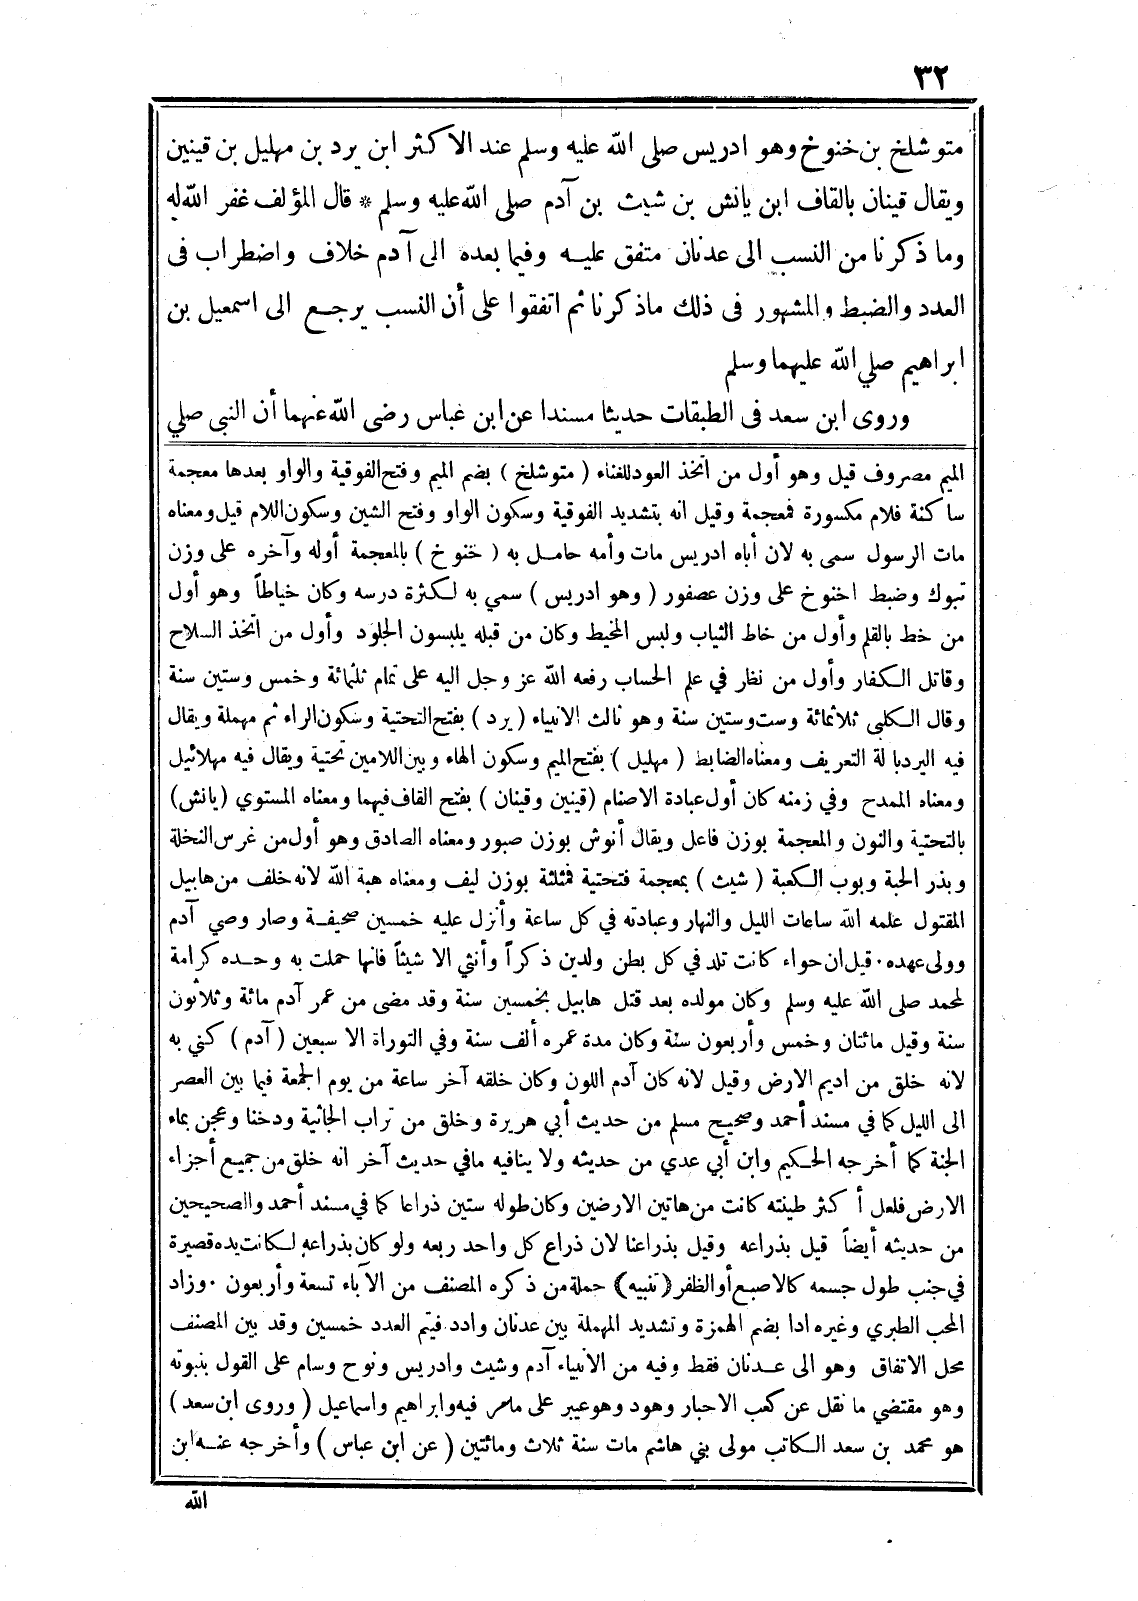 ٣٢
متوشلخ بن خنوخ وهو ادريس صلى الله عليه وسلم عند الاكثر ابن يرد بن مهليل بن قينين
ويقال قينان بالقاف ابن يانش بن شيث بن آدم صلى الله عليه وسلم * قال المؤلف غفر الله له
وما ذكرنا من النسب الى عدنان متفق عليه وفيما بعده الى آدم خلاف واضطراب فى
العدد والضبط والمشهور فى ذلك ماذكرنا ثم اتفقوا على أن النسب يرجع الى اسمعيل بن
ابراهيم صلي الله عليهما وسلم
وروى ابن سعد فى الطبقات حديثا مسندا عن ابن عباس رضى الله عنهما أن النبي صلي
الميم مصروف قيل وهو أول من اتخذ العود للغناء ( متوشلخ ) بضم الميم وفتح الفوقية والواو بعدها معجمة
ساكنة فلام مكسورة فمعجمة وقيل انه بتشديد الفوقية وسكون الواو وفتح الشين وسكون اللام قيل ومعناه
مات الرسول سمى به لان أباه ادريس مات وأمه حامل به ( خنوخ ) بالمعجمة أوله وآخره على وزن
تبوك وضبط اخنوخ على وزن عصفور ( وهو ادريس ) سمي به لكثرة درسه وكان خياطاً وهو أول
من خط بالقلم وأول من خاط الثياب ولبس المخيط وكان من قبله يلبسون الجلود وأول من اتخذ السلاح
وقاتل الكفار وأول من نظر في علم الحساب رفعه الله عز وجل اليه على تمام ثلثمائة وخمس وستين سنة
وقال الكلبي ثلاثمائة وست وستين سنة وهو ثالث الانبياء ( يرد ) بفتح التحتية وسكون الراء ثم مهملة ويقال
فيه اليرد بالة التعريف ومعناه الضابط ( مهليل ) بفتح الميم وسكون الهاء وبين اللامين تحتية ويقال فيه مهلائيل
ومعناه الممدح وفي زمنه كان أول عبادة الاصنام ( قينين وقينان ) بفتح القاف فيهما ومعناه المستوي ( يانش )
بالتحتية والنون والمعجمة بوزن فاعل ويقال أنوش بوزن صبور ومعناه الصادق وهو أول من غرس النخلة
وبذر الحبة وبوب الكعبة ( شيث ) بمعجمة فتحتية فمثلثة بوزن ليف ومعناه هبة الله لانه خلف من هابيل
المقتول علمه الله ساعات الليل والنهار وعبادته في كل ساعة وأنزل عليه خمسين صحيفة وصار وصي آدم
وولى عهده · قيل ان حواء كانت تلد في كل بطن ولدين ذكراً وأنثي الا شيثاً فانها حملت به وحده كرامة
لمحمد صلى الله عليه وسلم وكان مولده بعد قتل هابيل بخمسين سنة وقد مضى من عمر آدم مائة وثلاثون
سنة وقيل مائتان وخمس وأربعون سنة وكان مدة عمره ألف سنة وفي التوراة الا سبعين ( آدم ) كني به
لانه خلق من اديم الارض وقيل لانه كان آدم اللون وكان خلقه آخر ساعة من يوم الجمعة فيما بين العصر
الى الليل كما في مسند أحمد وصحيح مسلم من حديث أبي هريرة وخلق من تراب الجابية ودخنا وعجن بماء
الجنة كما أخرجه الحكيم وابن أبي عدي من حديثه ولا ينافيه مافي حديث آخر انه خلق من جميع أجزاء
الارض فلعل أكثر طينته كانت من هاتين الارضين وكان طوله ستين ذراعا كما في مسند أحمد والصحيحين
من حديثه أيضاً قيل بذراعه وقيل بذراعنا لان ذراع كل واحد ربعه ولو كان بذراعه لكانت يده قصيرة
في جنب طول جسمه كالاصبع أو الظفر ( تنبيه ) جملة من ذكره المصنف من الآباء تسعة وأربعون · وزاد
المحب الطبري وغيره ادا بضم الهمزة وتشديد المهملة بين عدنان وادد فيتم العدد خمسين وقد بين المصنف
محل الاتفاق وهو الى عدنان فقط وفيه من الانبياء آدم وشيث وادريس ونوح وسام على القول بنبوته
وهو مقتضي ما نقل عن كعب الاحبار وهود وهو عيبر على مامر فيه وابراهيم واسماعيل ( وروى ابن سعد )
هو محمد بن سعد الكاتب مولى بني هاشم مات سنة ثلاث ومائتين ( عن ابن عباس ) وأخرجه عنه ابن
الله